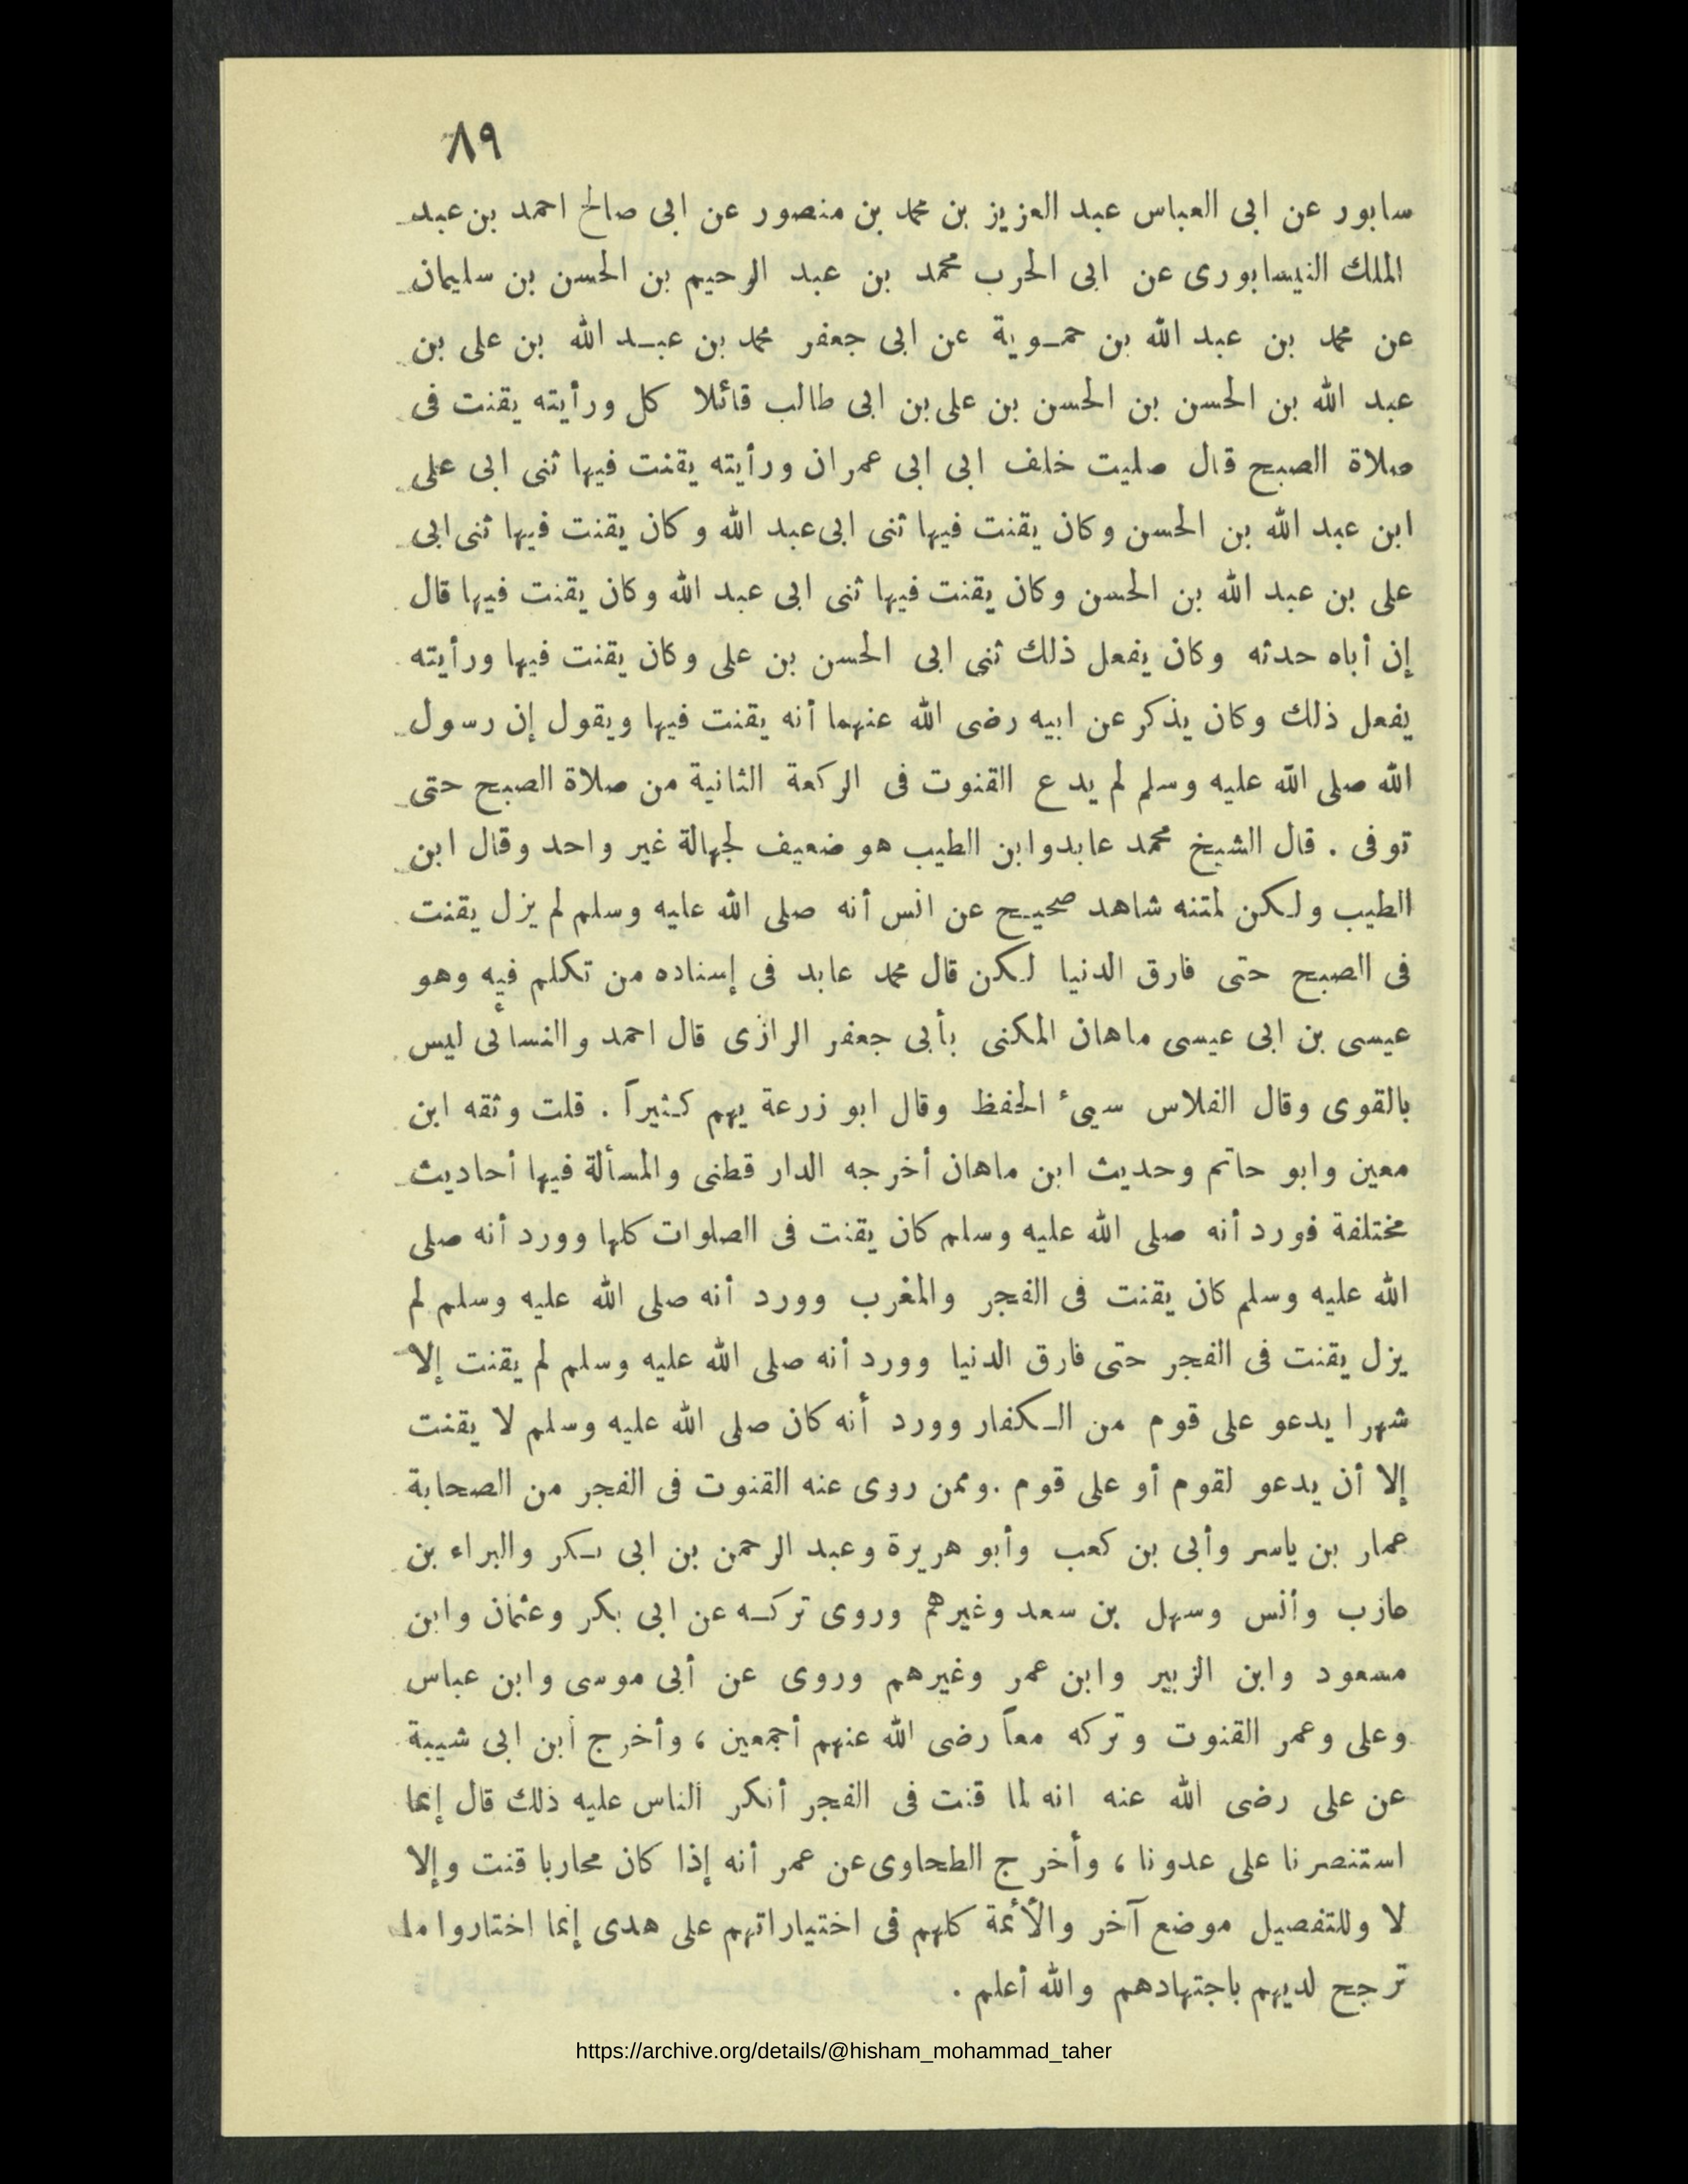 ٨٩
سابور عن ابى العباس عبد العزيز بن محمد بن منصور عن ابى صالح احمد بن عبد
الملك النيسابورى عن ابى الحرب محمد بن عبد الرحيم بن الحسن بن سليمان
عن محمد بن عبد الله بن حمـوية عن ابى جعفر محمد بن عبـد الله بن على بن
عبد الله بن الحسن بن الحسن بن على بن ابى طالب قائلا كل ورأيته يقنت فى
صلاة الصبح قال صليت خلف ابى ابى عمران ورأيته يقنت فيها ثنى ابى على
ابن عبد الله بن الحسن وكان يقنت فيها ثنى ابى عبد الله وكان يقنت فيها ثنى ابى
على بن عبد الله بن الحسن وكان يقنت فيها ثنى ابى عبد الله وكان يقنت فيها قال
إن أباه حدثه وكان يفعل ذلك ثنى ابى الحسن بن على وكان يقنت فيها ورأيته
يفعل ذلك وكان يذكر عن ابيه رضى الله عنهما أنه يقنت فيها ويقول إن رسول
الله صلى الله عليه وسلم لم يدع القنوت فى الركعة الثانية من صلاة الصبح حتى
توفى . قال الشيخ محمد عابدوابن الطيب هو ضعيف لجهالة غير واحد وقال ابن
الطيب ولـكن لمتنه شاهد صحيـح عن انس أنه صلى الله عليه وسلم لم يزل يقنت
فى الصبح حتى فارق الدنيا لـكن قال محمد عابد فى إسناده من تكلم فيه وهو
عيسى بن ابى عيسى ماهان المكنى بأبى جعفر الرازى قال احمد والنسائى ليس
بالقوى وقال الفلاس سيىء الحفظ وقال ابو زرعة يهم كـثيراً . قلت وثقه ابن
معين وابو حاتم وحديث ابن ماهان أخرجه الدار قطنى والمسألة فيها أحاديث
مختلفة فورد أنه صلى الله عليه وسلم كان يقنت فى الصلوات كلها وورد أنه صلى
الله عليه وسلم كان يقنت فى الفجر والمغرب وورد أنه صلى الله عليه وسلم لم
يزل يقنت فى الفجر حتى فارق الدنيا وورد أنه صلى الله عليه وسلم لم يقنت إلا
شهرا يدعو على قوم من الـكفار وورد أنه كان صلى الله عليه وسلم لا يقنت
إلا أن يدعو لقوم أو على قوم .وممن روى عنه القنوت فى الفجر من الصحابة
عمار بن ياسر وأبى بن كعب وأبو هريرة وعبد الرحمن بن ابى بـكر والبراء بن
عازب وأنس وسهل بن سعد وغيرهم وروى تركـه عن ابى بكر وعثمان وابن
مسعود وابن الزبير وابن عمر وغيرهم وروى عن أبى موسى وابن عباس
وعلى وعمر القنوت وتركه معاً رضى الله عنهم أجمعين ، وأخرج ابن ابى شيبة
عن على رضى الله عنه انه لما قنت فى الفجر أنكر الناس عليه ذلك قال إنما
استنصرنا على عدونا ، وأخرج الطحاوى عن عمر أنه إذا كان محاربا قنت وإلا
لا وللتفصيل موضع آخر والأئمة كلهم فى اختياراتهم على هدى إنما اختاروا ما
ترجح لديهم باجتهادهم والله أعلم .
https://archive.org/details/@hisham_mohammad_taher